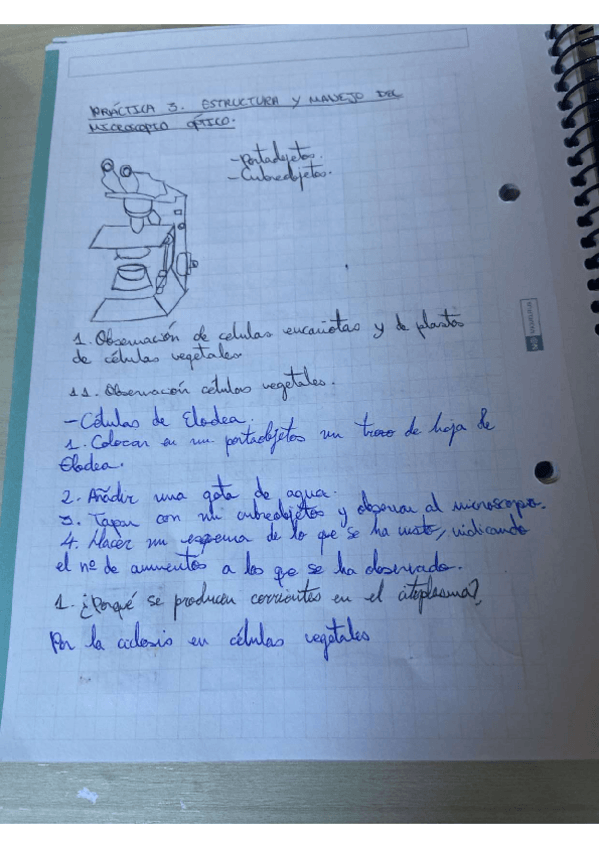 PRÁCTICA 3. ESTRUCTURA Y MANEJO DEL
MICROSCOPIO ÓPTICO.
- Portaobjetos.
- Cubreobjetos.
1. Observación de células eucariotas y de plastos
de células vegetales
1.1. Observación células vegetales.
- Células de Elodea.
1. Colocar en un portaobjetos un trozo de hoja de
Elodea.
2. Añadir una gota de agua.
3. Tapar con un cubreobjetos y observar al microscopio.
4. Hacer un esquema de lo que se ha visto, indicando
el nº de aumentos a los que se ha observado.
1. ¿Porqué se producen corrientes en el citoplasma?
Por la ciclosis en células vegetales